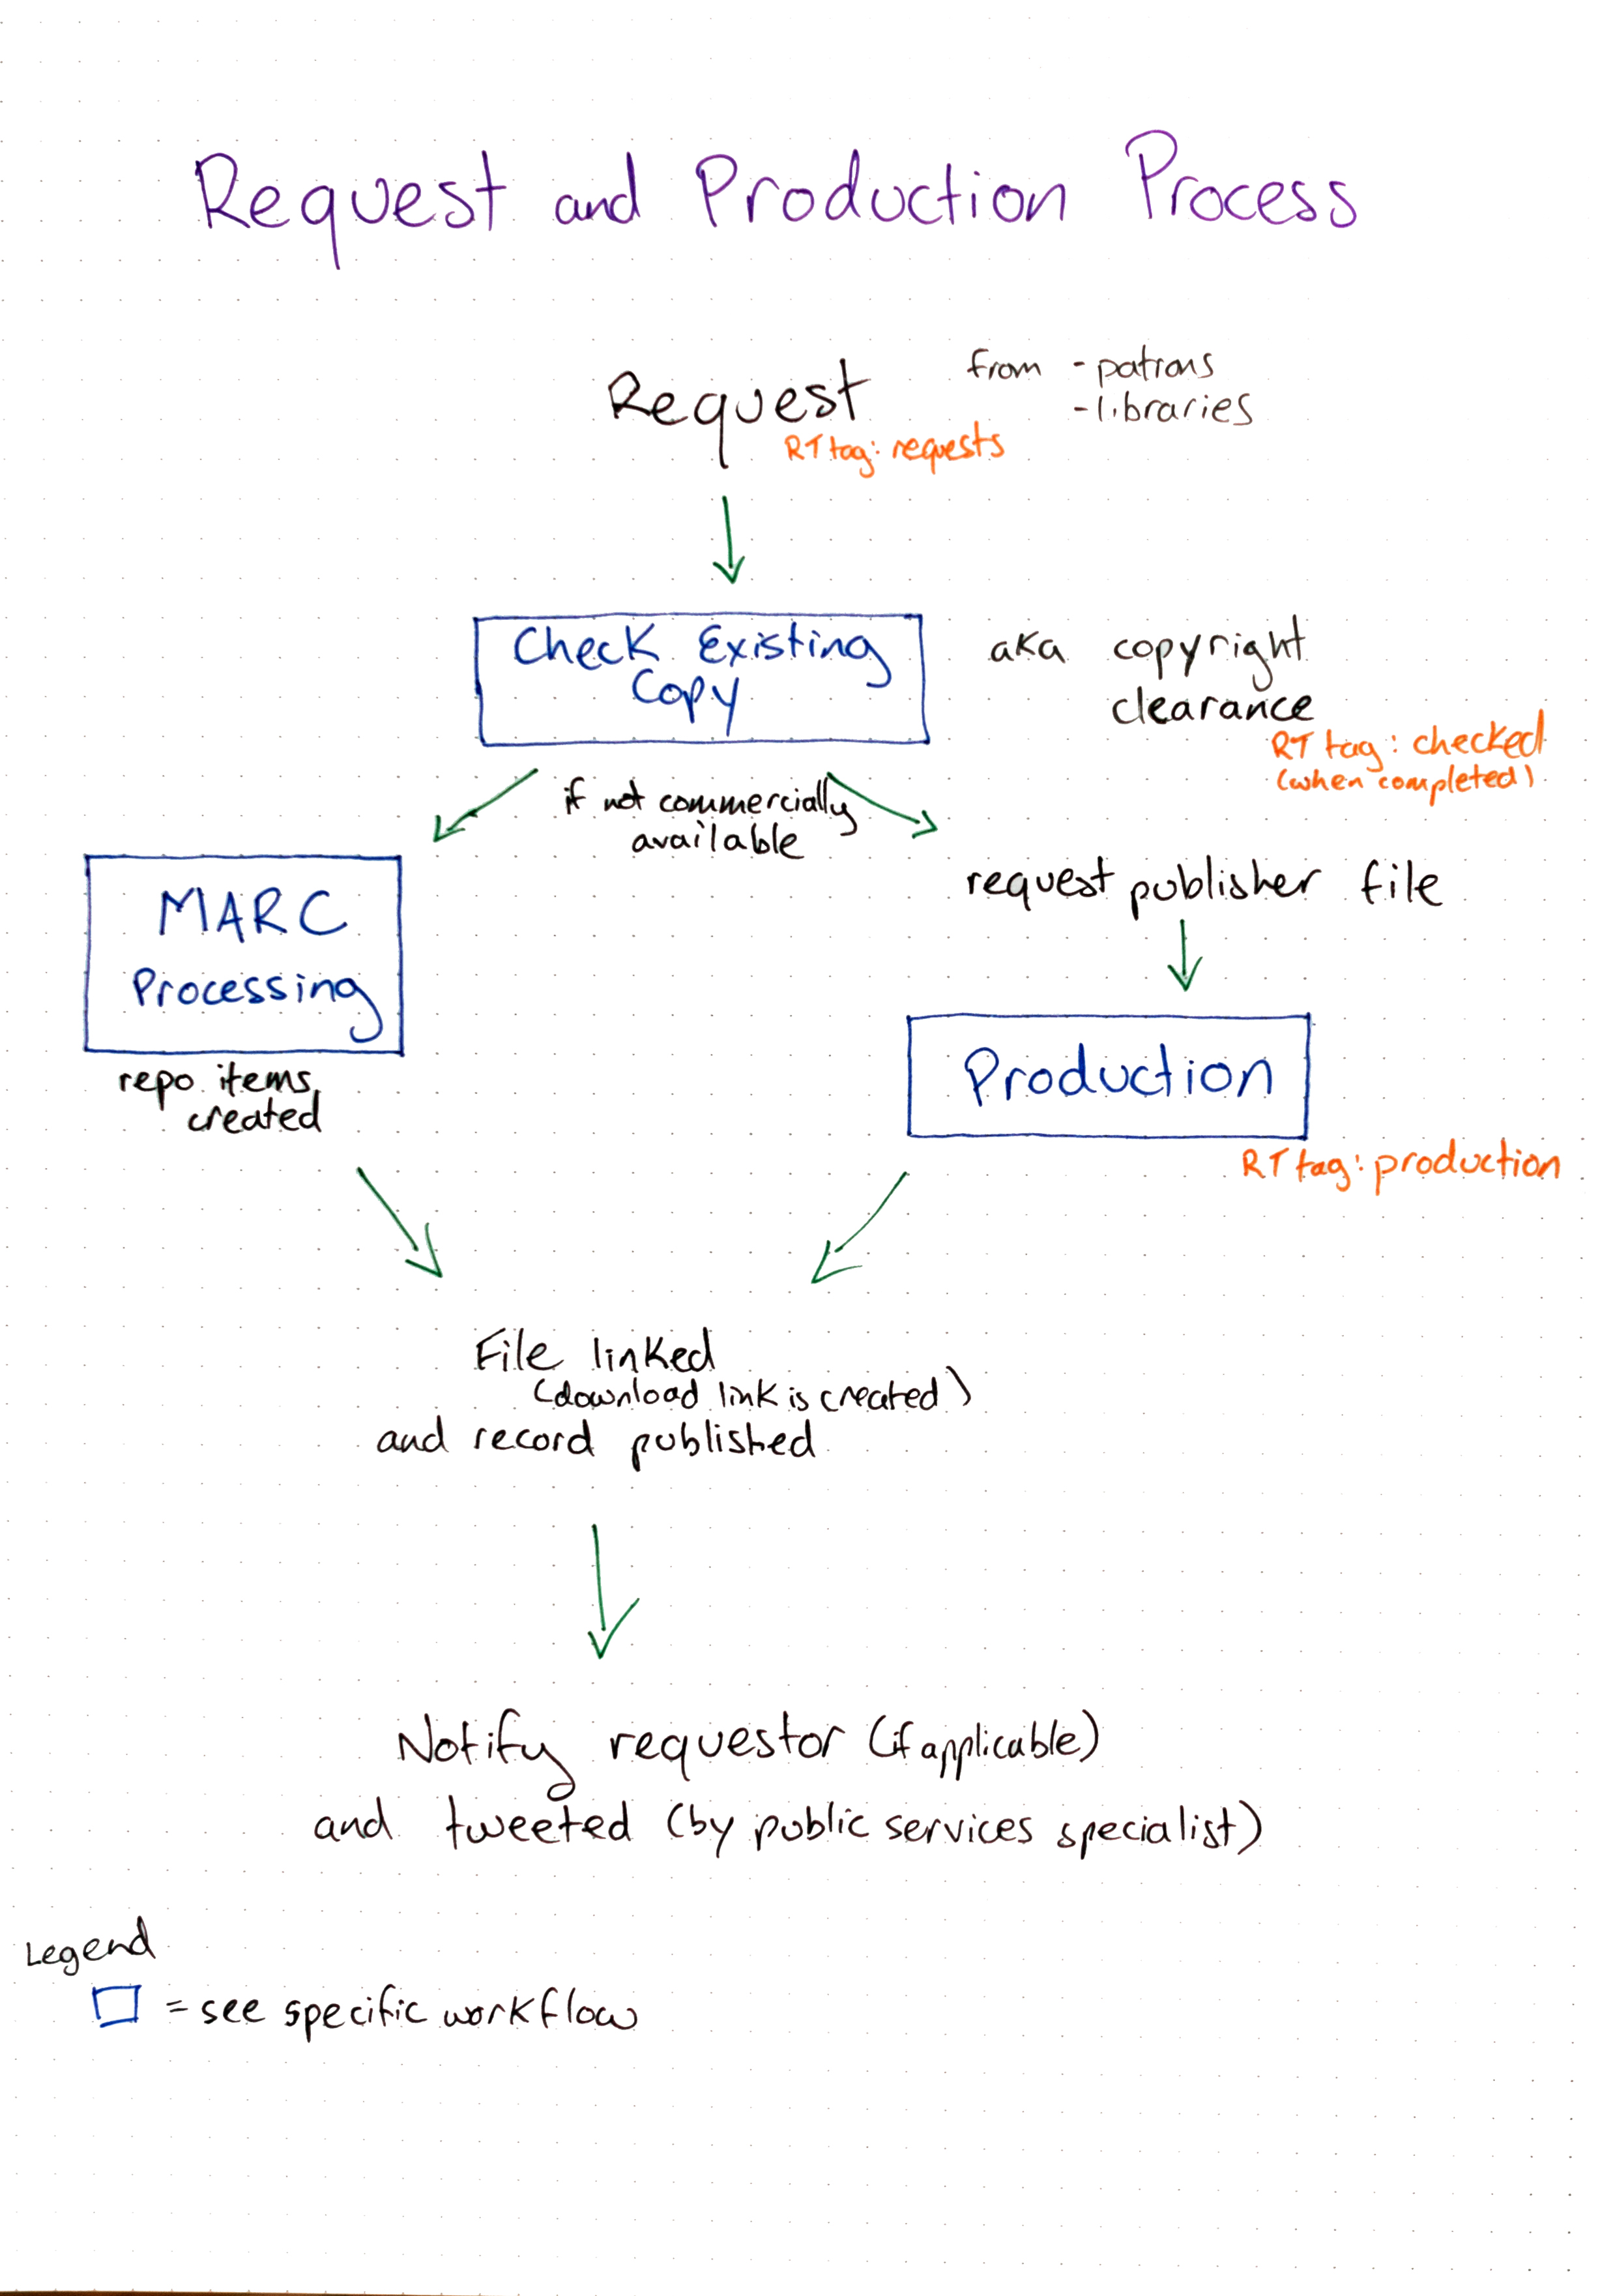 Request and Production Process
Request
from - patrons
- libraries
RT tag: requests
Check Existing
Copy
aka copyright
clearance
RT tag: checked
(when completed)
if not commercially
available
MARC
Processing
repo items
created
request publisher file
Production
RT tag: production
File linked
(download link is created)
and record published
Notify requestor (if applicable)
and tweeted (by public services specialist)
Legend
= see specific workflow